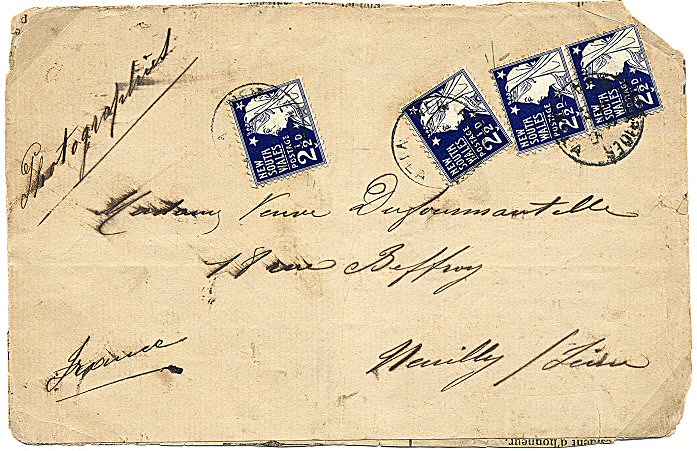 Photographies
NEW SOUTH WALES POSTAGE 2½D
NEW SOUTH WALES POSTAGE 2½D
NEW SOUTH WALES POSTAGE 2½D
NEW SOUTH WALES POSTAGE 2½D
VILA
Madame Veuve Dufourmantelle
18 rue Beffroy
France
Neuilly /Seine
d'honneur.